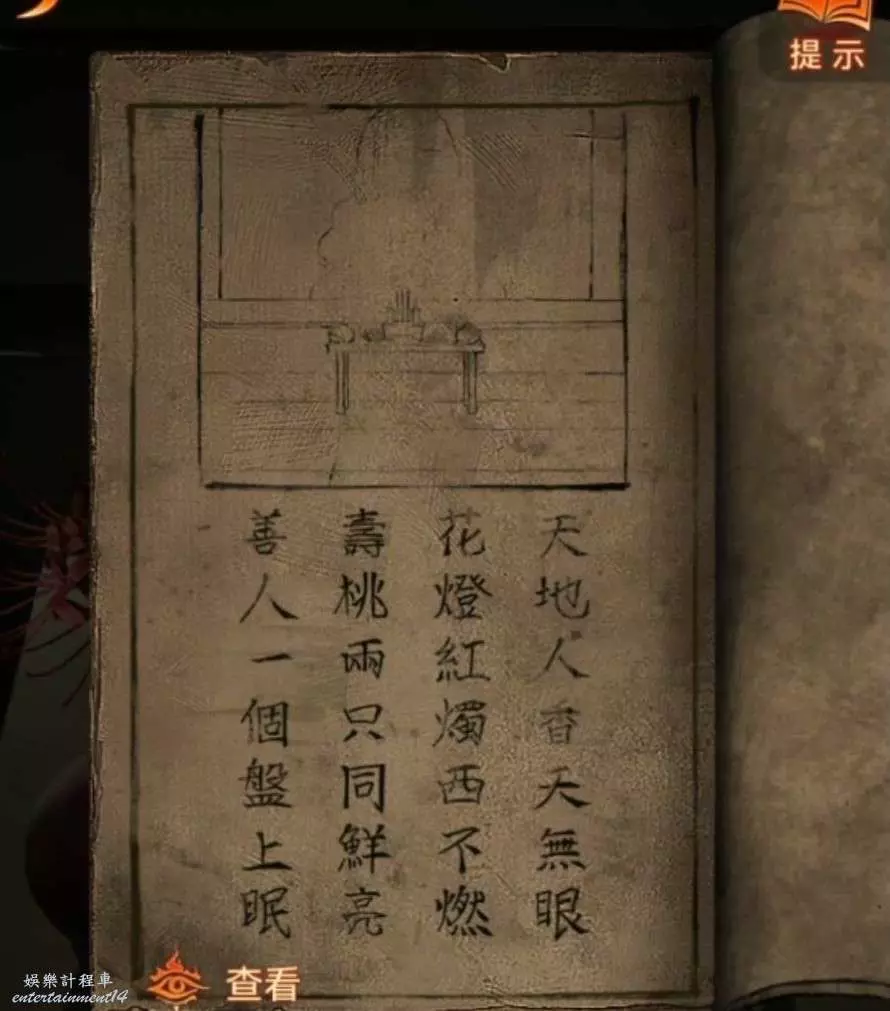 提示
天地人香天無眼
花燈紅燭西不燃
壽桃兩只同鮮亮
善人一個盤上眠
查看
娛樂計程車
entertainment14